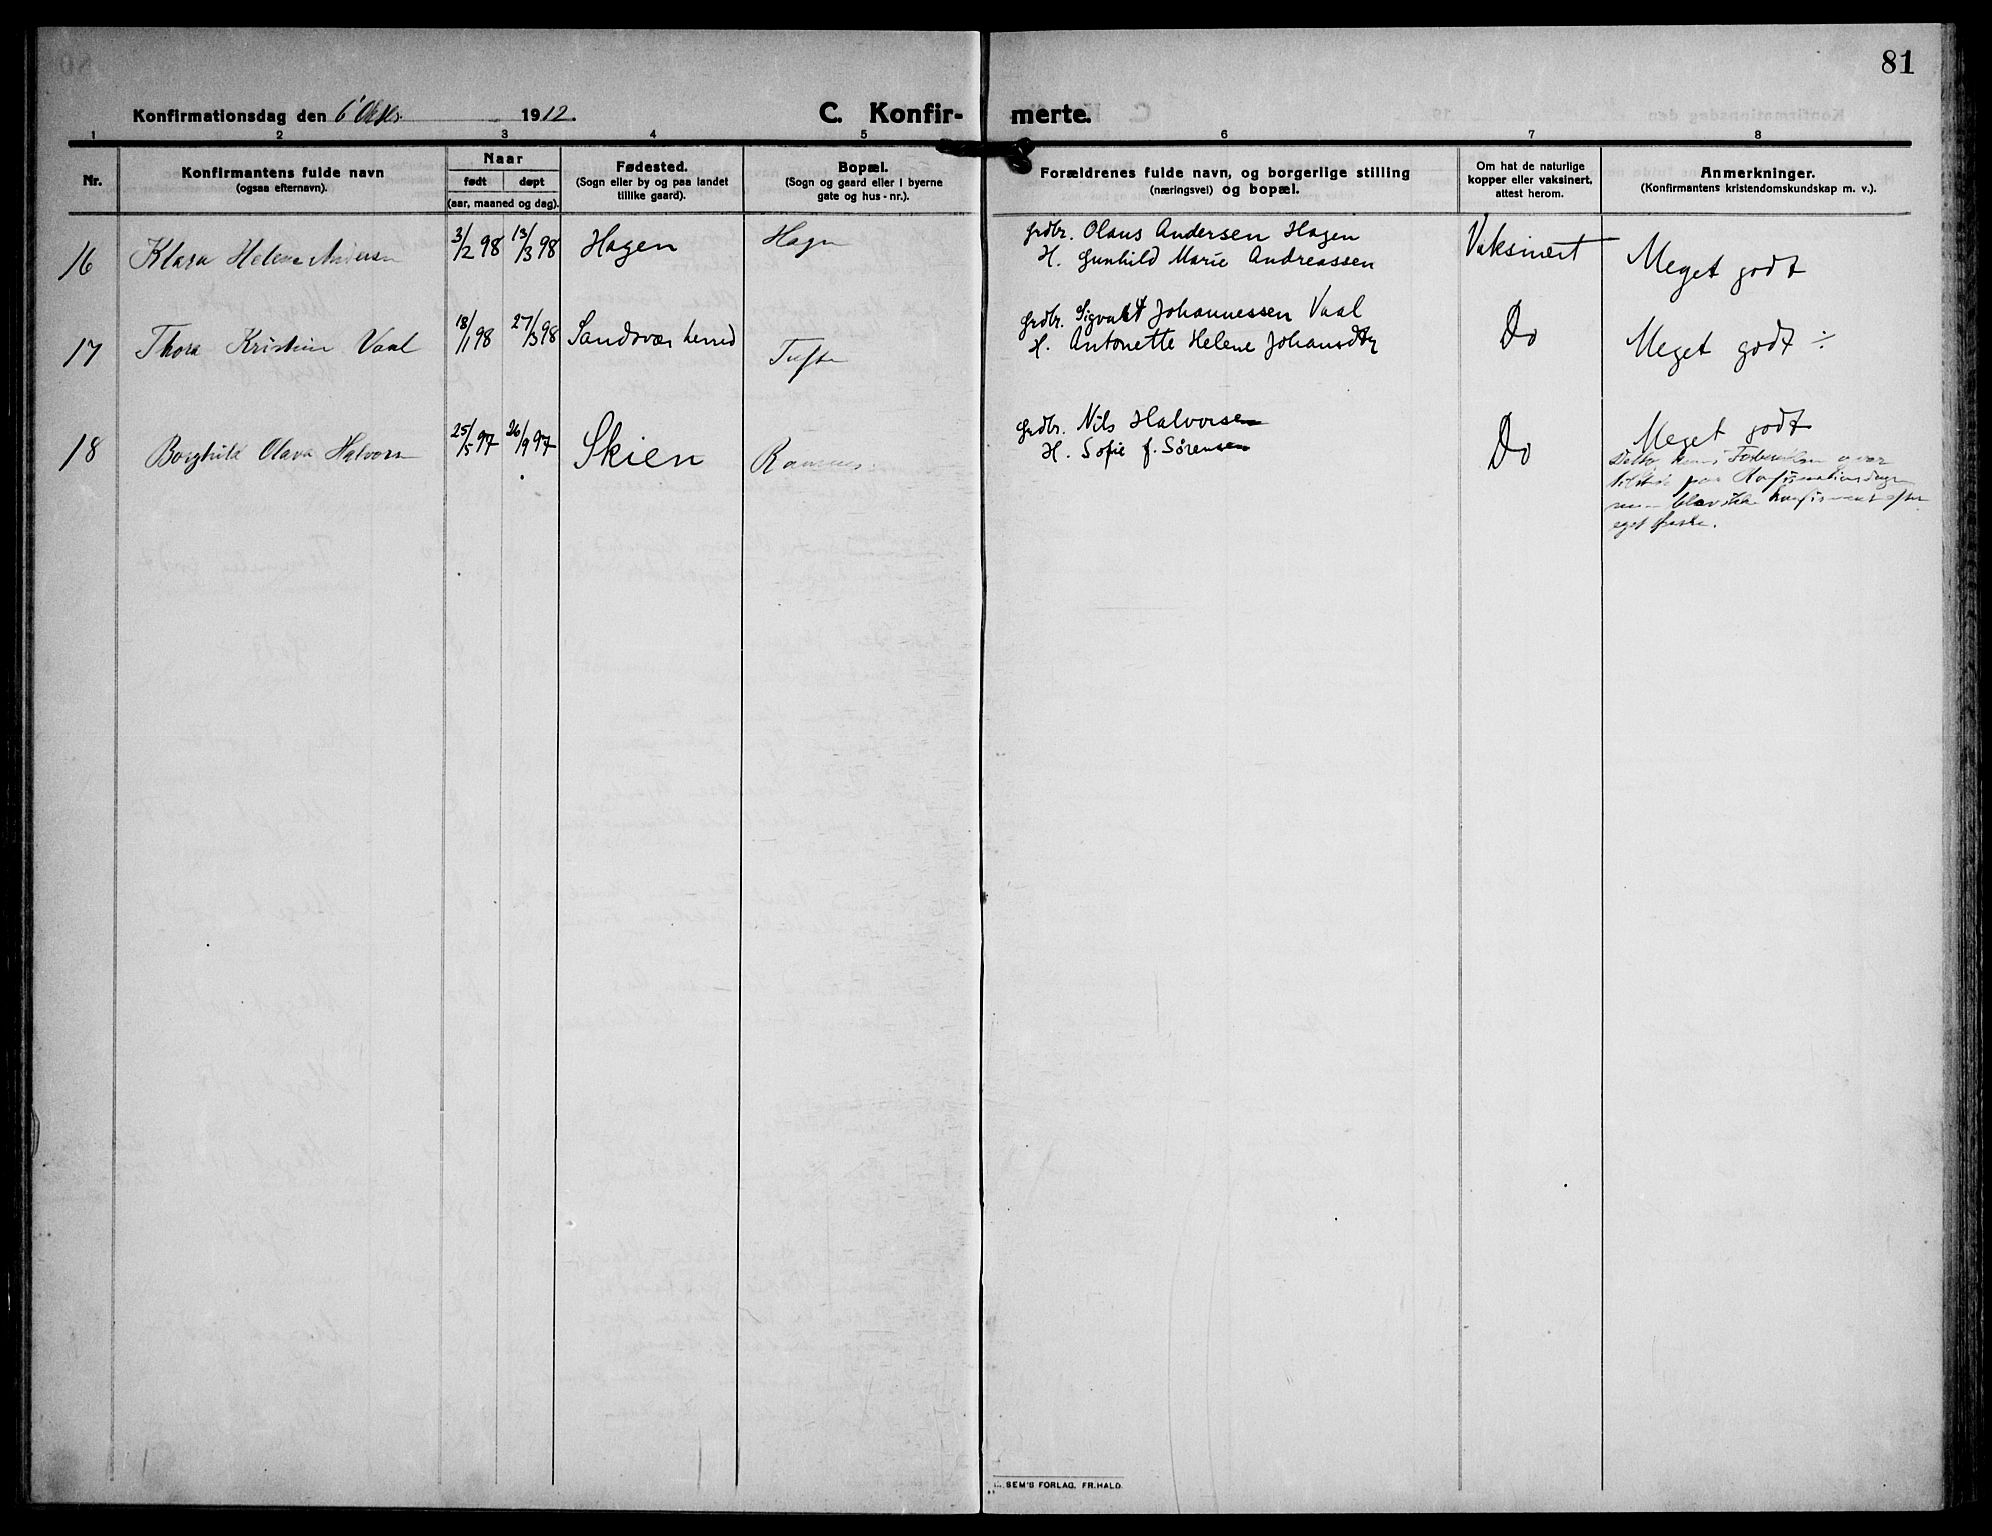 81
Konfirmationsdag den 6 Oktbr. 1912.
C. Konfir- merte.
1 2 3 4 5 6 7 8
Nr.
Konfirmantens fulde navn
(ogsaa efternavn).
Naar
født døpt
(aar, maaned og dag).
Fødested.
(Sogn eller by og paa landet
tillike gaard).
Bopæl.
(Sogn og gaard eller i byerne
gate og hus-nr.).
Forældrenes fulde navn, og borgerlige stilling
(næringsvei) og bopæl.
Om hat de naturlige
kopper eller vaksinert,
attest herom.
Anmerkninger.
(Konfirmantens kristendomskundskap m. v.).
16 Klara Helene Andersen 3/2 98 13/3 98 Hagen Hagen
grdbr. Olaus Andersen Hagen
H. Gunhild Marie Andreassen
Vaksinert
Meget godt
17 Thora Kristine Vaal 18/1 98 27/3 98 Sandsvær herred Tufte
grdbr. Sigvalt Johannessen Vaal
H. Antonette Helene Johansdtr
Do
Meget godt ÷
18 Borghild Olava Halvorsen 25/5 97 26/9 97 Skien
grdbr. Nils Halvorsen
H. Sofie f. Sørensen
Do
Meget godt
paa Konfirmationsdagen
konfirmert efter
eget ønske.
SEM'S FORLAG, FR.HALD.